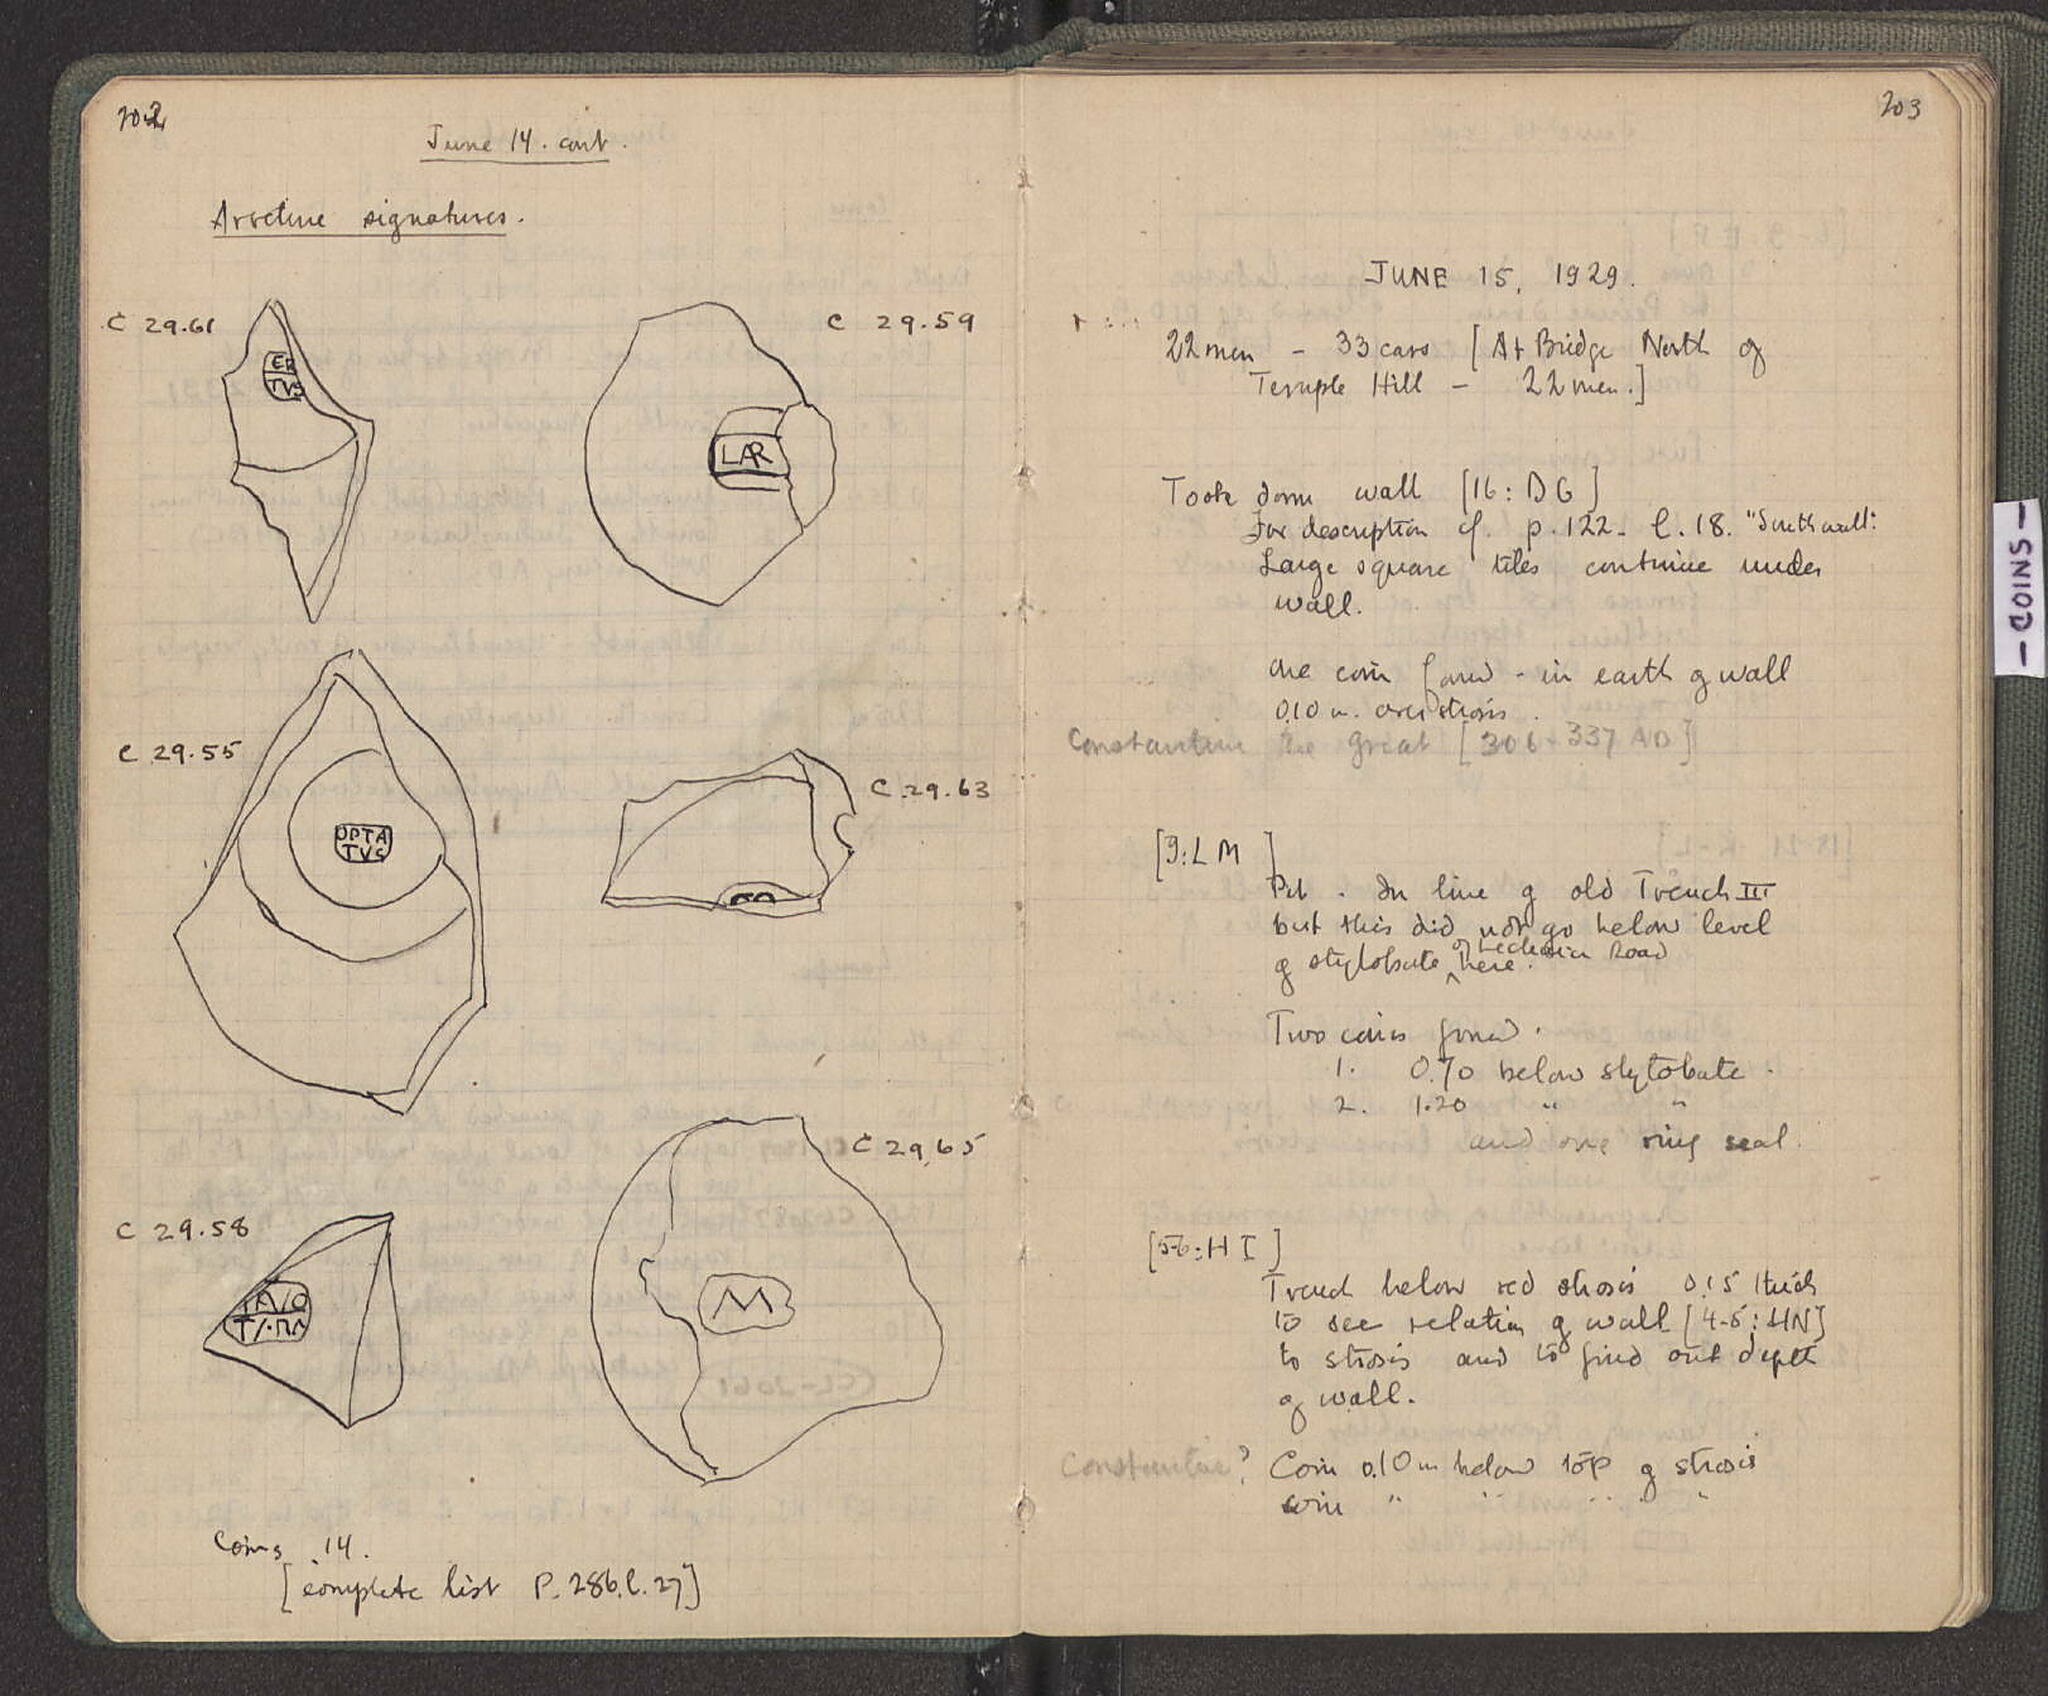 202
June 14. cont.
Arretine signatures.
C 29.61
ER
TVS
C 29.59
LAR
C 29.55
OPTA
TVS
C 29.63
C 29.58
C 29.65
M
Coins 14.
[complete list P. 286. l. 27]
203
JUNE 15, 1929.
22 men - 33 cars [At Bridge North of
Temple Hill - 22 men.]
Took down wall [16: DG]
For description cf. p. 122. l. 18. "South wall".
Large square tiles continue under
wall.
One coin found - in earth of wall
0.10 m. over strosis.
Constantine the Great [306-337 AD]
[9: LM]
Pit. In line of old Trench III
but this did not go below level
of stylobate of Lechaion Road here.
Two coins found.
1. 0.70 below stylobate.
2. 1.20 " "
and one ring seal.
[5-6: HI]
Trench below red strosis 0.15 thick
to see relation of wall [4-5: HN]
to strosis and to find out depth
of wall.
Constantine? Coin 0.10 m below top of strosis
coin " " " " "
- COINS -